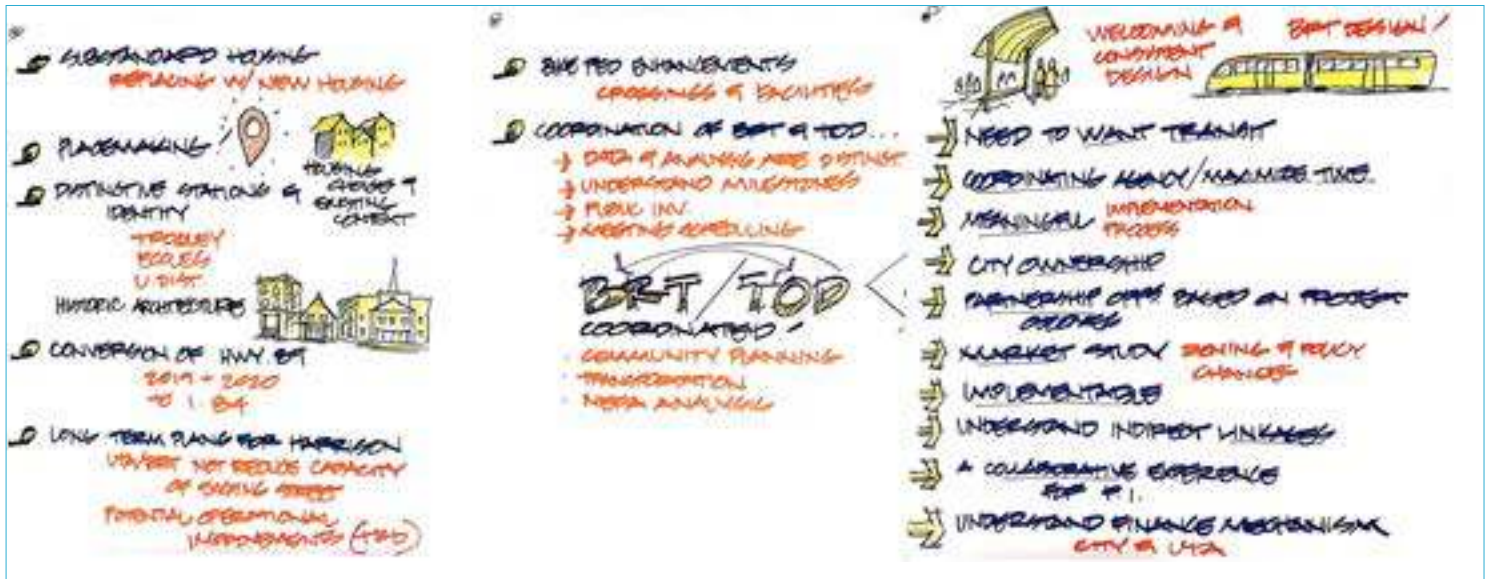 SUBSTANDARD HOUSING
REPLACING W/ NEW HOUSING
PLACEMAKING
HOUSING
CHOICES &
EXISTING
CONTEXT
DISTINCTIVE STATIONS &
IDENTITY
TROLLEY
U DIST.
HISTORIC ARCHITECTURE
CONVERSION OF HWY 89
2019 - 2020
TO 1.
LONG TERM PLANS FOR HARRISON
NOT REDUCE CAPACITY
OF EXISTING STREET
POTENTIAL OPERATIONAL
IMPROVEMENTS (TBD)
BIKE PED ENHANCEMENTS
CROSSINGS & FACILITIES
COORDINATION OF BRT & TOD...
DATA & ANALYSIS DISTINCT.
UNDERSTAND MILESTONES
PUBLIC INV.
MEETING SCHEDULING
BRT/TOD
COORDINATED
COMMUNITY PLANNING
TRANSPORTATION
NEPA ANALYSIS
WELCOMING &
CONSISTENT
DESIGN
BRT DESIGN!
NEED TO WANT TRANSIT
COORDINATING AGENCY/MAXIMIZE TIME.
MEANINGFUL IMPLEMENTATION
PROCESS
CITY OWNERSHIP
PARTNERSHIP OPPS BASED ON PROJECT
MARKET STUDY ZONING & POLICY
CHANGES
IMPLEMENTABLE
UNDERSTAND INDIRECT LINKAGES
A COLLABORATIVE EXPERIENCE
FOR # 1.
UNDERSTAND FINANCE MECHANISM
CITY & UTA